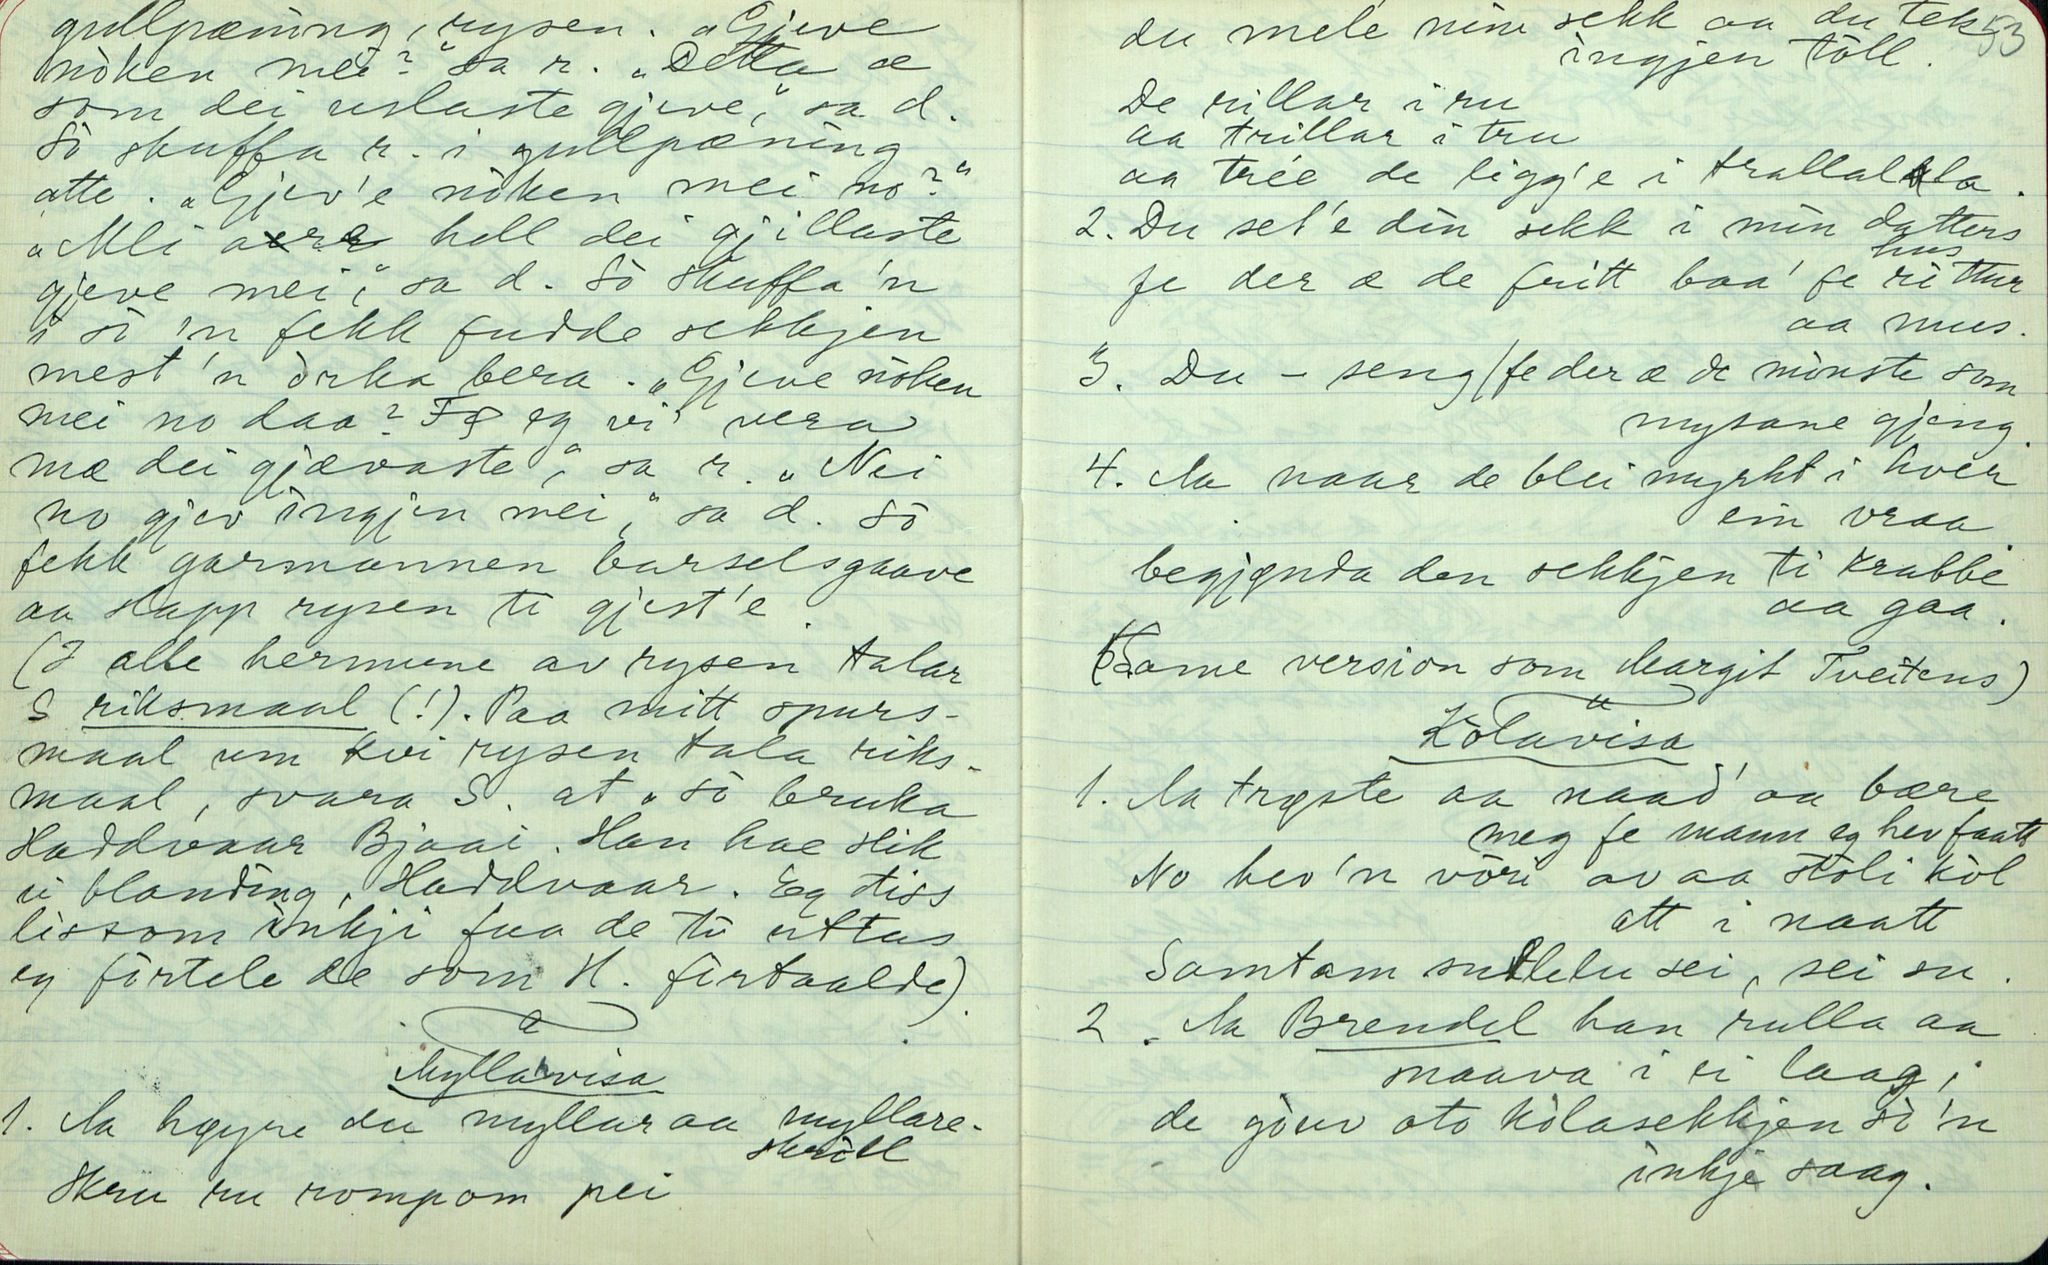 gullpæning, rysen. „Gjeve
nòken mei?" sa r. „Detta æ
som dei uslaste gjeve," sa d.
Sò skuffa r. i gullpæning
atte. „Gjev'e nòken mei no?"
„Mli aere hell dei gjillaste
gjeve mei," sa d. Sò skuffa'n
i sò 'n fekk fudde sekkjen
mest 'n òrka bera. „Gjeve nòken
mei no daa? Fø eg vi' vera
mæ dei gjævaste," sa r. „Nei
no gjev ingjen mei," sa d. Sò
fekk garmannen barselsgaave
aa slapp rysen ti gjest'e.
(I alle hermune av rysen talar
S riksmaal (!). Paa mitt spurs-
maal um kvi rysen tala riks-
maal, svara S. at „sò bruka
Haddvaar Bjaai. Han hae slik
ei blanding, Haddvaar. Eg tiss
lissom inkji faa de ti uttas
eg fòrtele de som H. fòrtaalde).
Myllarvisa
1. Aa høyre du myllar aa myllare-
skròll
Skru ru rompom pei
53
du mele min sekk aa du tek
ingjen toll.
De rillar i ru
aa trillar i tru
aa trée de ligg'e i trallalala.
2. Du set'e din sekk i min datters
hus
fe der æ de fritt baa' fe rottur
aa mus.
3. Du – seng / fe der æ de minste som
mysane gjeng.
4. Aa naar de blei myrkt i hver
ein vraa
begjynda den sekkjen ti krabbe
aa gaa.
(Same version som Margit Tveitens)
Kòlavisa
1. Aa trøste aa naad' aa bære
meg fe mann eg hev faatt
No hev'n vòri av aa stòli kòl
att i naatt
Samtam sudleli sei, sei su.
2. Aa Brendel han rulla aa
snaava i ei laag,
de gòuv oto kòlasekkjen sò'n
inkje saag.